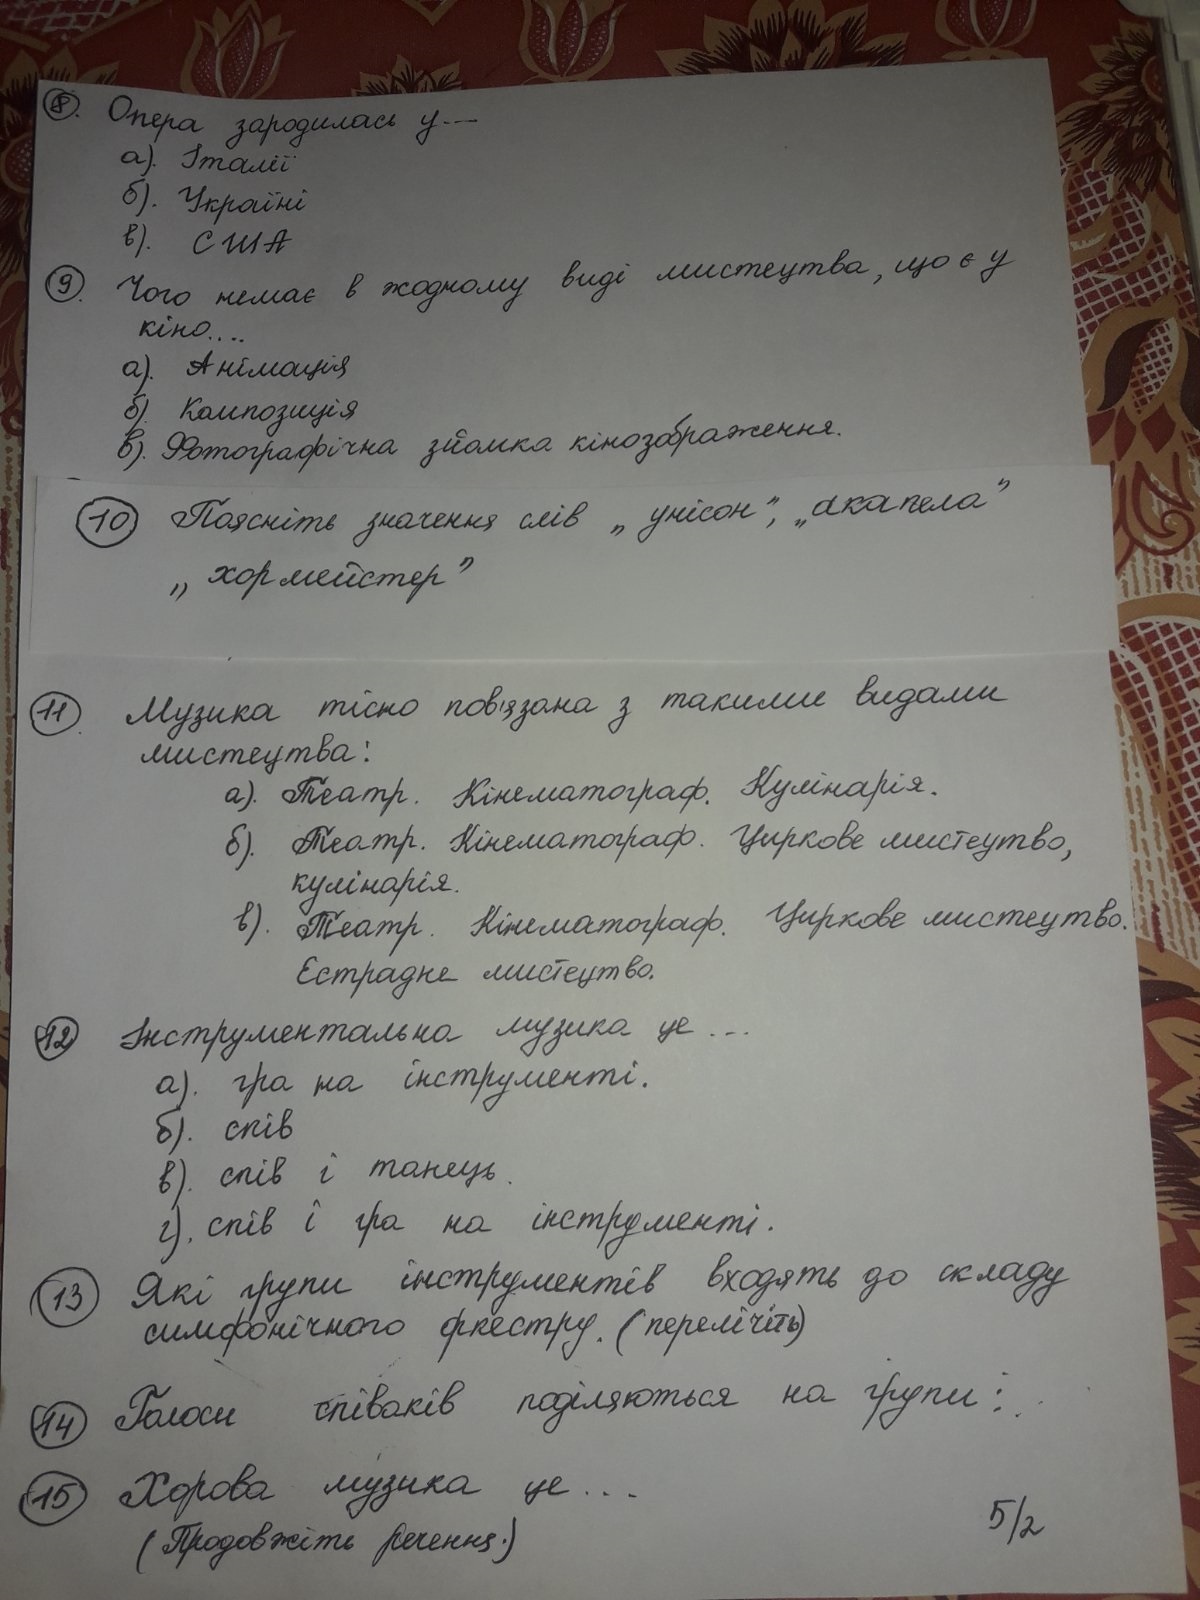 8. Опера зародилась у...
а). Італії
б). Україні
в). США
9. Чого немає в жодному виді мистецтва, що є у
кіно....
а). Анімація
б) Композиція
в). Фотографічна зйомка кінозображення.
10 Поясніть значення слів „унісон", „акапела"
„хормейстер"
11. Музика тісно пов'язана з такими видами
мистецтва:
а). Театр. Кінематограф. Кулінарія.
б). Театр. Кінематограф. Циркове мистецтво,
кулінарія.
в). Театр. Кінематограф. Циркове мистецтво.
Естрадне мистецтво.
12 Інструментальна музика це ...
а). гра на інструменті.
б). спів
в). спів і танець.
г). спів і гра на інструменті.
13 Які групи інструментів входять до складу
симфонічного оркестру. (перелічіть)
14 Голоси співаків поділяються на групи:
15 Хорова музика це ...
(Продовжіть речення.)
5/2